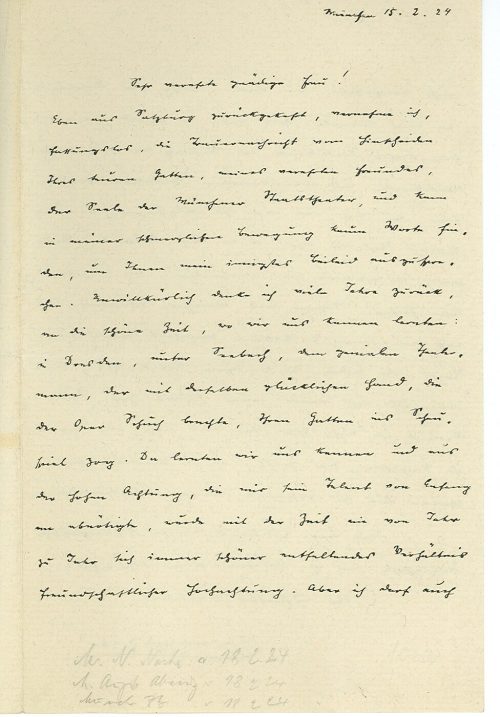 München 15. 2. 24
Sehr verehrte gnädige Frau!
Eben aus Salzburg zurückgekehrt, vernehme ich,
fassungslos, die Trauernachricht vom Hinscheiden
Ihres teuren Gatten, meines verehrten Freundes,
der Seele der Münchner Staatstheater, und kann
in meiner schmerzlichen Bewegung kaum Worte fin-
den, um Ihnen mein innigstes Beileid auszuspre-
chen. Unwillkürlich denke ich viele Jahre zurück,
an die schöne Zeit, wo wir uns kennen lernten:
in Dresden, unter Seebach, dem genialen Theater-
mann, der mit derselben glücklichen Hand, die
der Oper Schuch brachte, Ihren Gatten ins Schau-
spiel zog. Da lernten wir uns kennen und aus
der hohen Achtung, die mir sein Talent von Anfang
an abnötigte, wurde mit der Zeit ein von Jahr
zu Jahr sich immer schöner entfaltendes Verhältnis
freundschaftlicher Hochachtung. Aber ich darf auch
18 2 24
M. 18 2 24
18 2 24